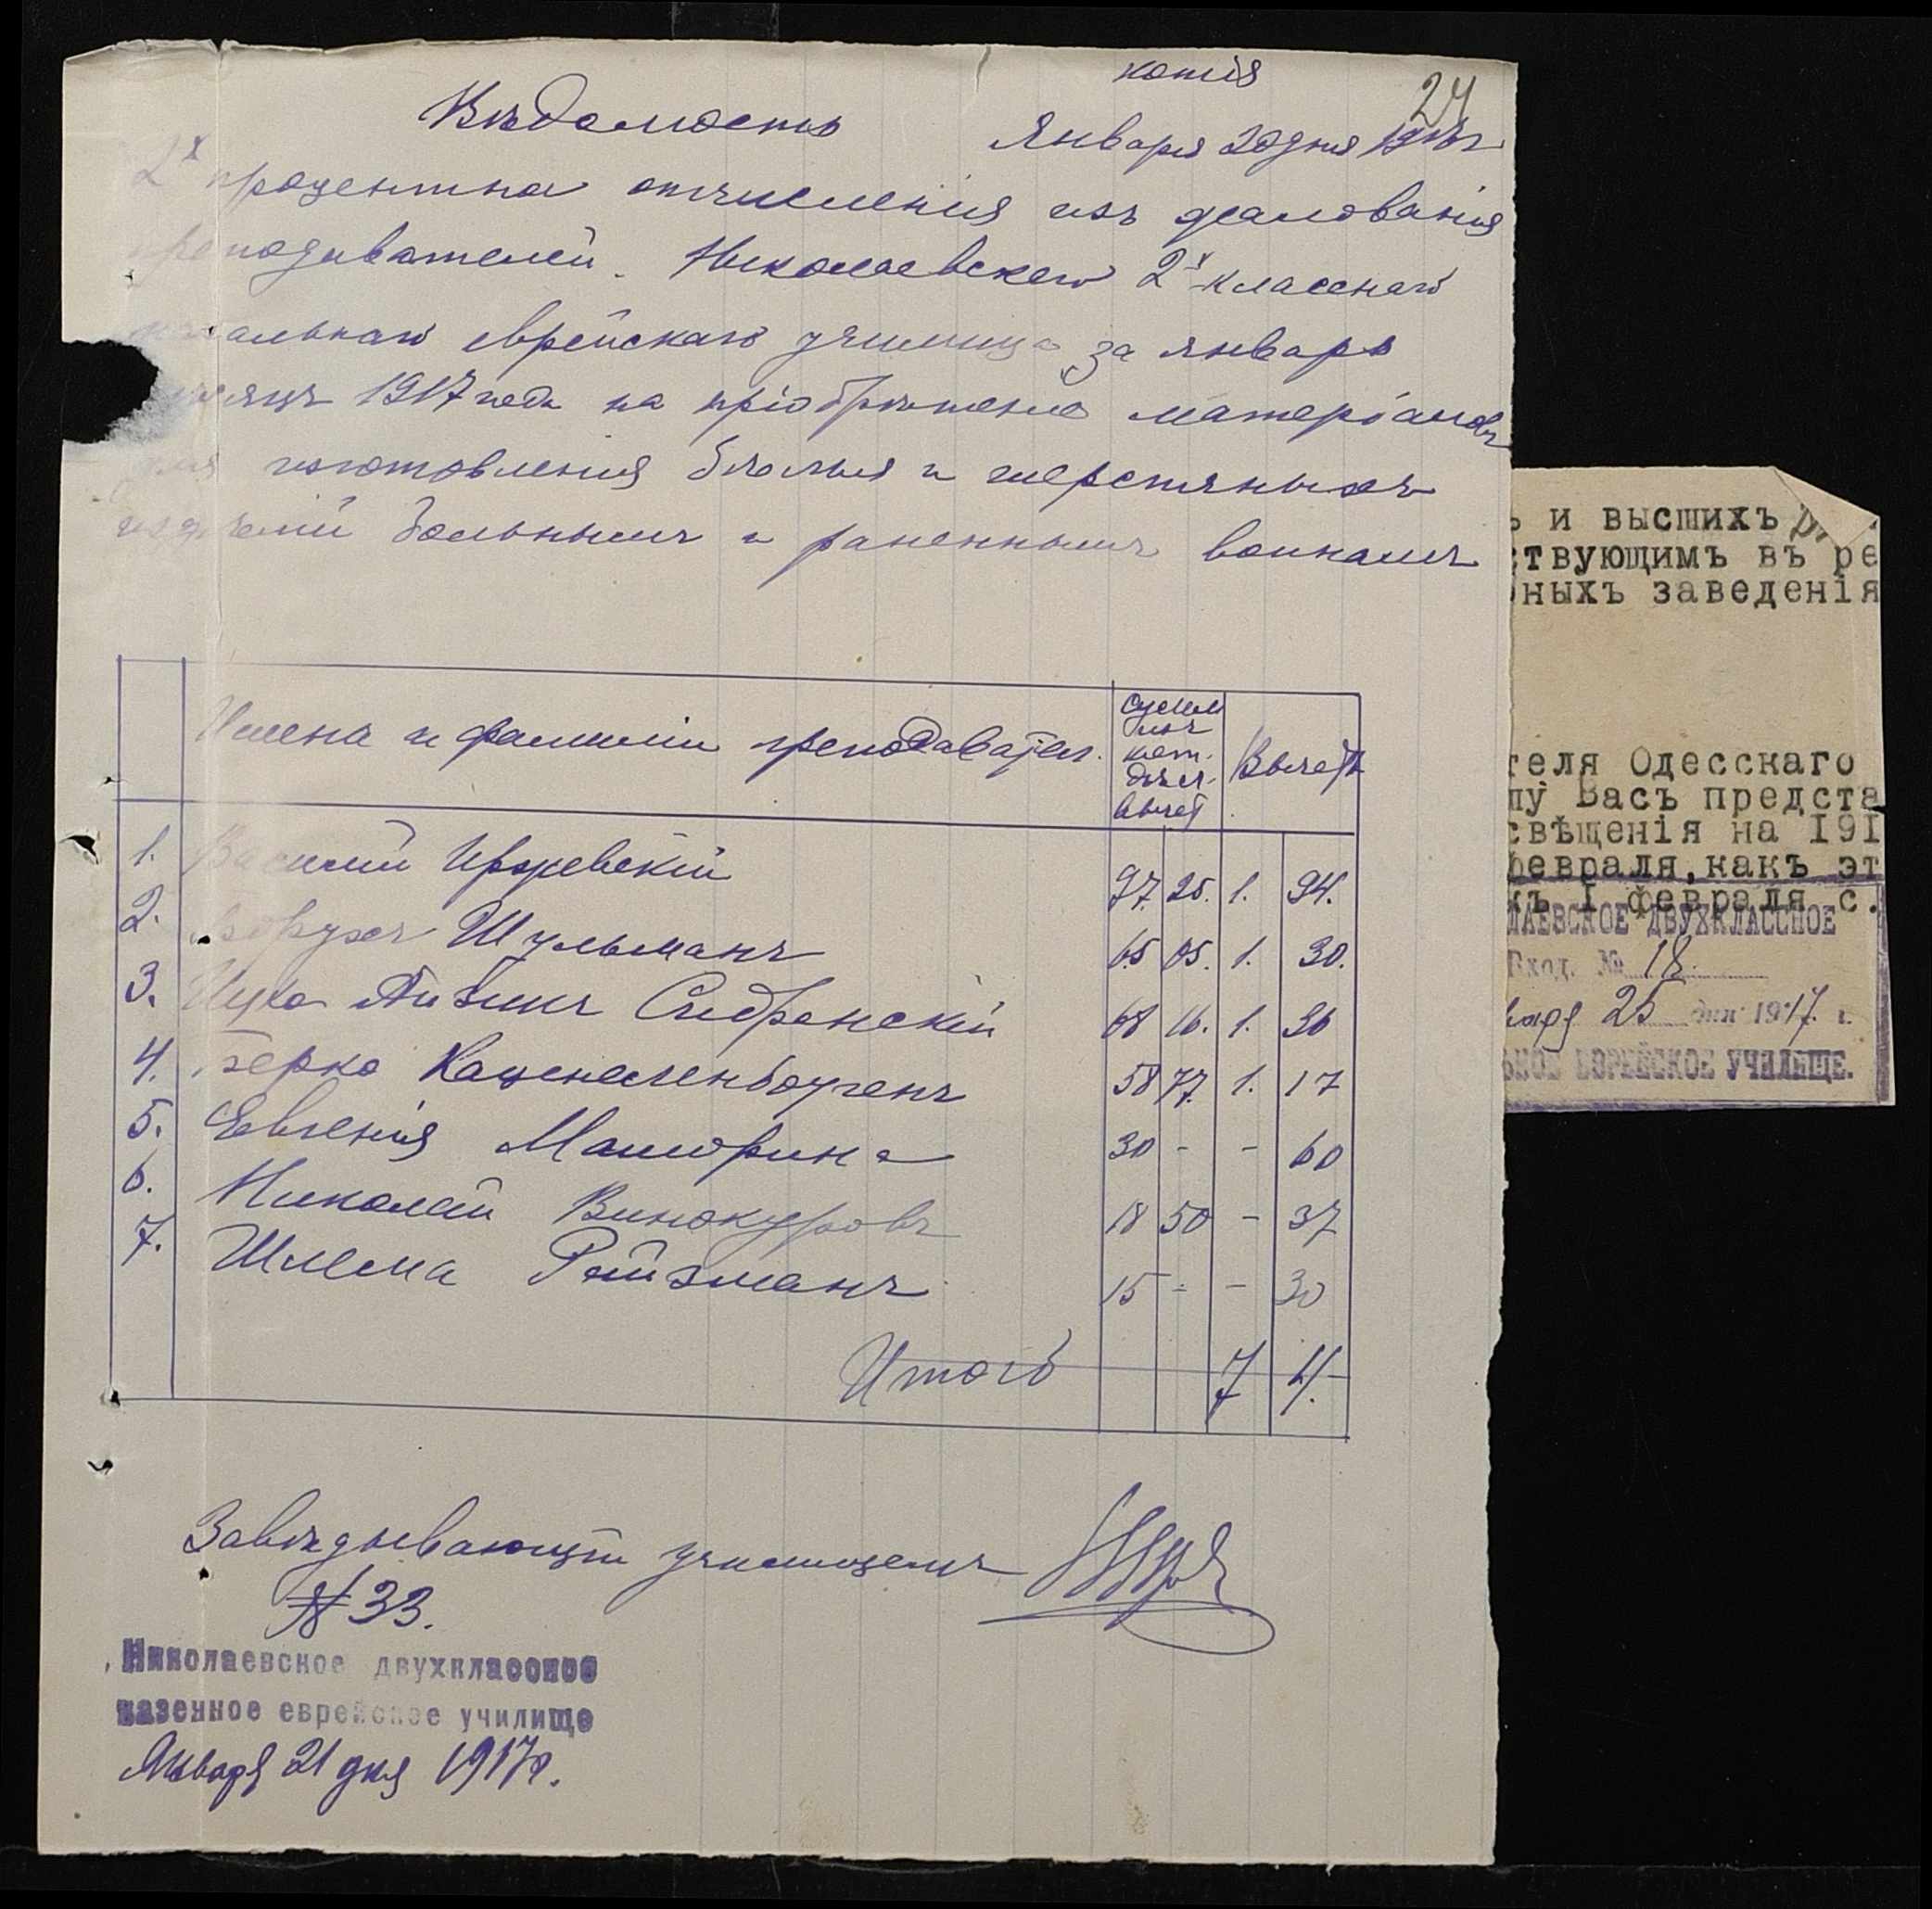 копія
24
Вѣдомость
Января 20 дня 1917 г
2х процентна отчисленія изъ жалованія
преподавателей Николаевскаго 2х классного
начальнаго еврейскаго училища за январь
мѣсяцъ 1917 года на пріобрѣтеніе матеріаловъ
для изготовленія бѣлья и шерстяныхъ
издѣлій больнымъ и раненнымъ воинамъ
Имена и фамиліи преподавател.
Сумма изъ кот. дѣл. вычет
Вычетъ
1. Василий Иржевскій 97. 25. 1. 94.
2. Борухъ Шульманъ 65 05. 1. 30.
3. Ицко Айзикъ Сыдранскій 68 16. 1. 36
4. Берко Каценеленбогенъ 58 77. 1. 17
5. Евгенія Машорина 30 - - 60
6. Николай Винокуровъ 18 50 - 37
7. Шлема Ройзманъ 15 - - 30
Итого 7 4.-
Завѣдывающій училищемъ
№ 33.
Николаевское двухклассное
казенное еврейское училище
Января 21 дня 1917 г.
ъ и высшихъ
ствующимъ въ ре
ныхъ заведенія
теля Одесскаго
шу Васъ предста
свѣщенія на 191
февраля,какъ эт
къ I февраля с.
ЛАЕВСКОЕ ДВУХКЛАССНОЕ
Вход. № 18
25 дня 1917 г.
ЬНОЕ ЕВРЕЙСКОЕ УЧИЛИЩЕ.